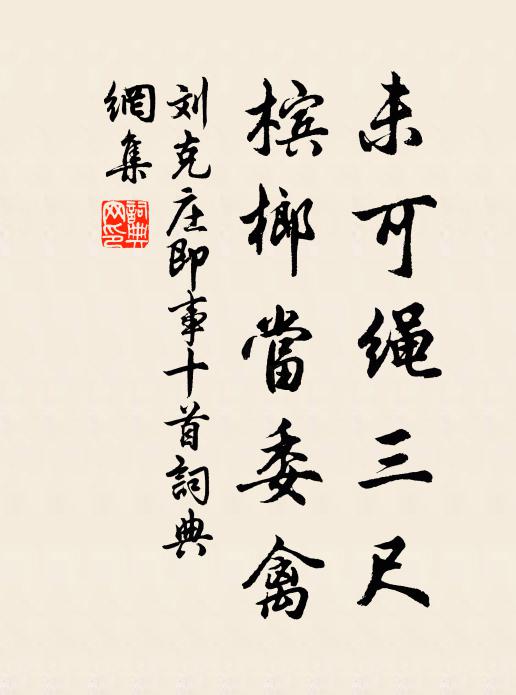 未可绳三尺
槟榔當委禽
刘克庄即事十首詞典
網集
詞典網印